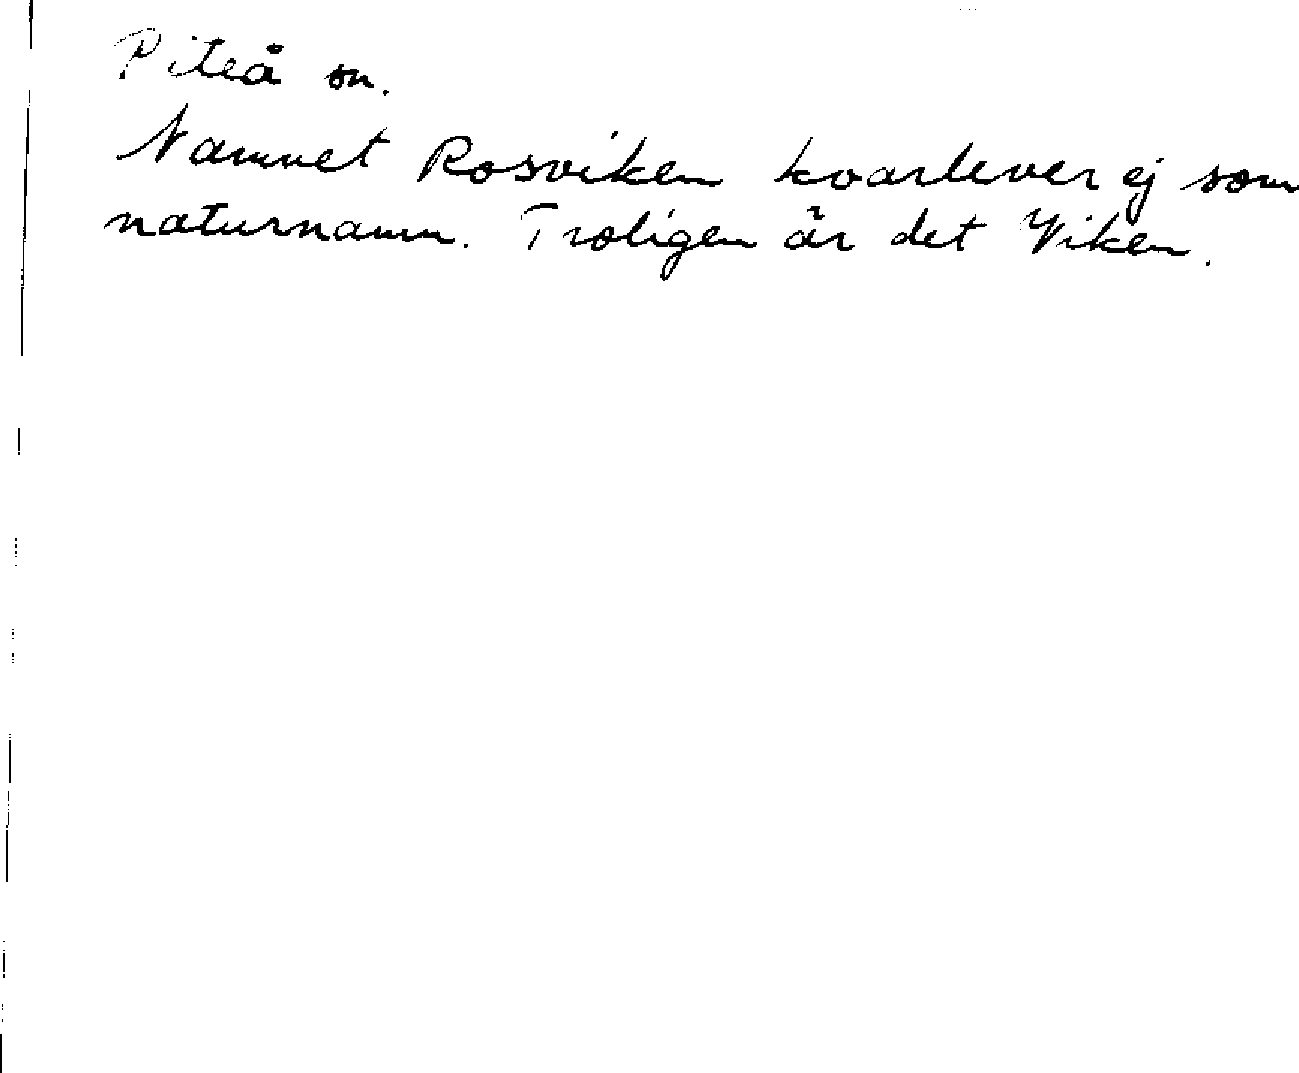 Piteå sn.
Namnet Rosviken kvarlever ej som
naturnamn. Troligen är det Viken.